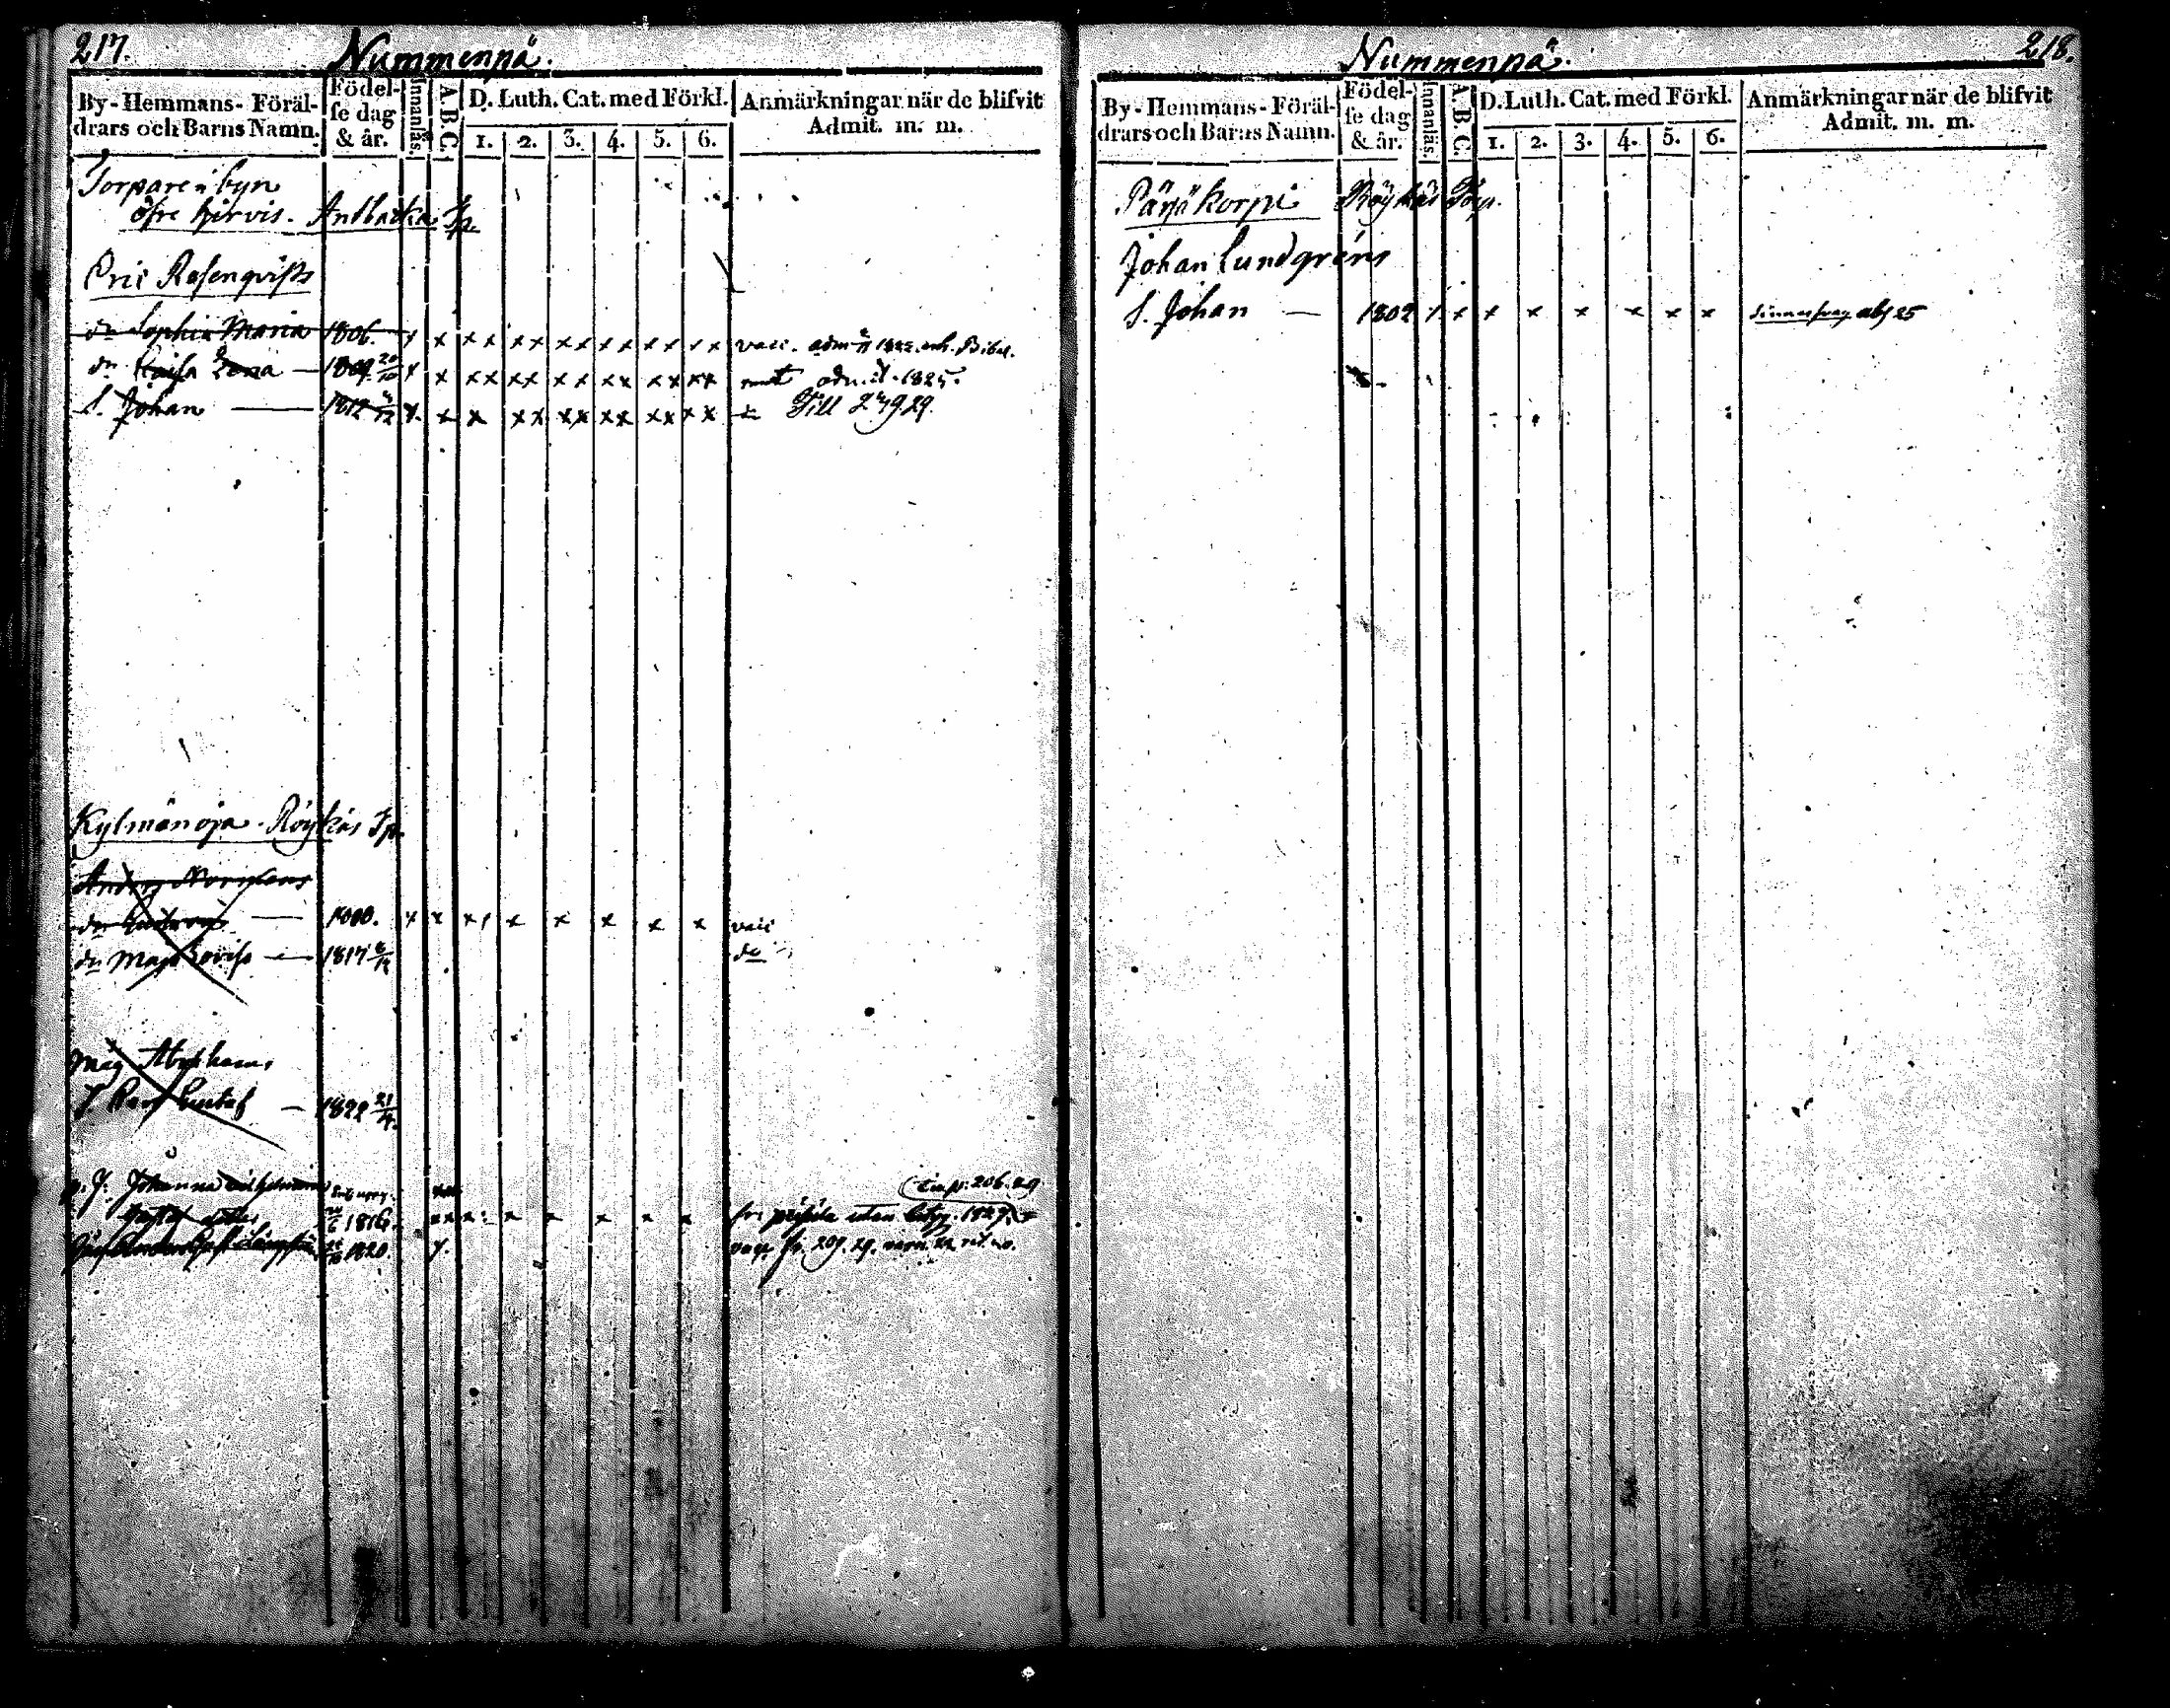 217.
Nummenpä.
By-Hemmans-Föräl-
drars och Barns Namn.
Födel-
se dag
& år.
Innanläs.
A.B.C.
D. Luth. Cat. med Förkl.
1. 2. 3. 4. 5. 6.
Anmärkningar när de blifvit
Admit. m. m.
Torpare i byn
öfre hirvis. Andbacka Tp
Eric Rosenqvists
dr Sophia Maria 1806. x x x x x x x x x x x x x x vacc. adm 1822
dr Caisa Lena — 1809 20/10 x x x x x x x x x x x x x x admit. 1825.
S. Johan — 1812 x x x x x x x x x x x x x Till 279.29.
Kylmänoja. Röykäs Tp
Anders
dr — 1800. x x x x x x x x vacc
dr Maja Lovisa — 1817 do
Måg Abrahams
S. Carl Gustaf — 1822 21/4.
Johanna 206.29
1816. x x x x x x x 1829
1820. x. vacc fr. 209. 29.
218.
Nummenpä.
By-Hemmans-Föräl-
drars och Barns Namn.
Födel-
se dag
& år.
Innanläs.
A.B.C.
D. Luth. Cat. med Förkl.
1. 2. 3. 4. 5. 6.
Anmärkningar när de blifvit
Admit. m. m.
Pärjäkorpi Röykäs Torp.
Johan Lundgréns
S. Johan — 1802 x x x x x x x x 25